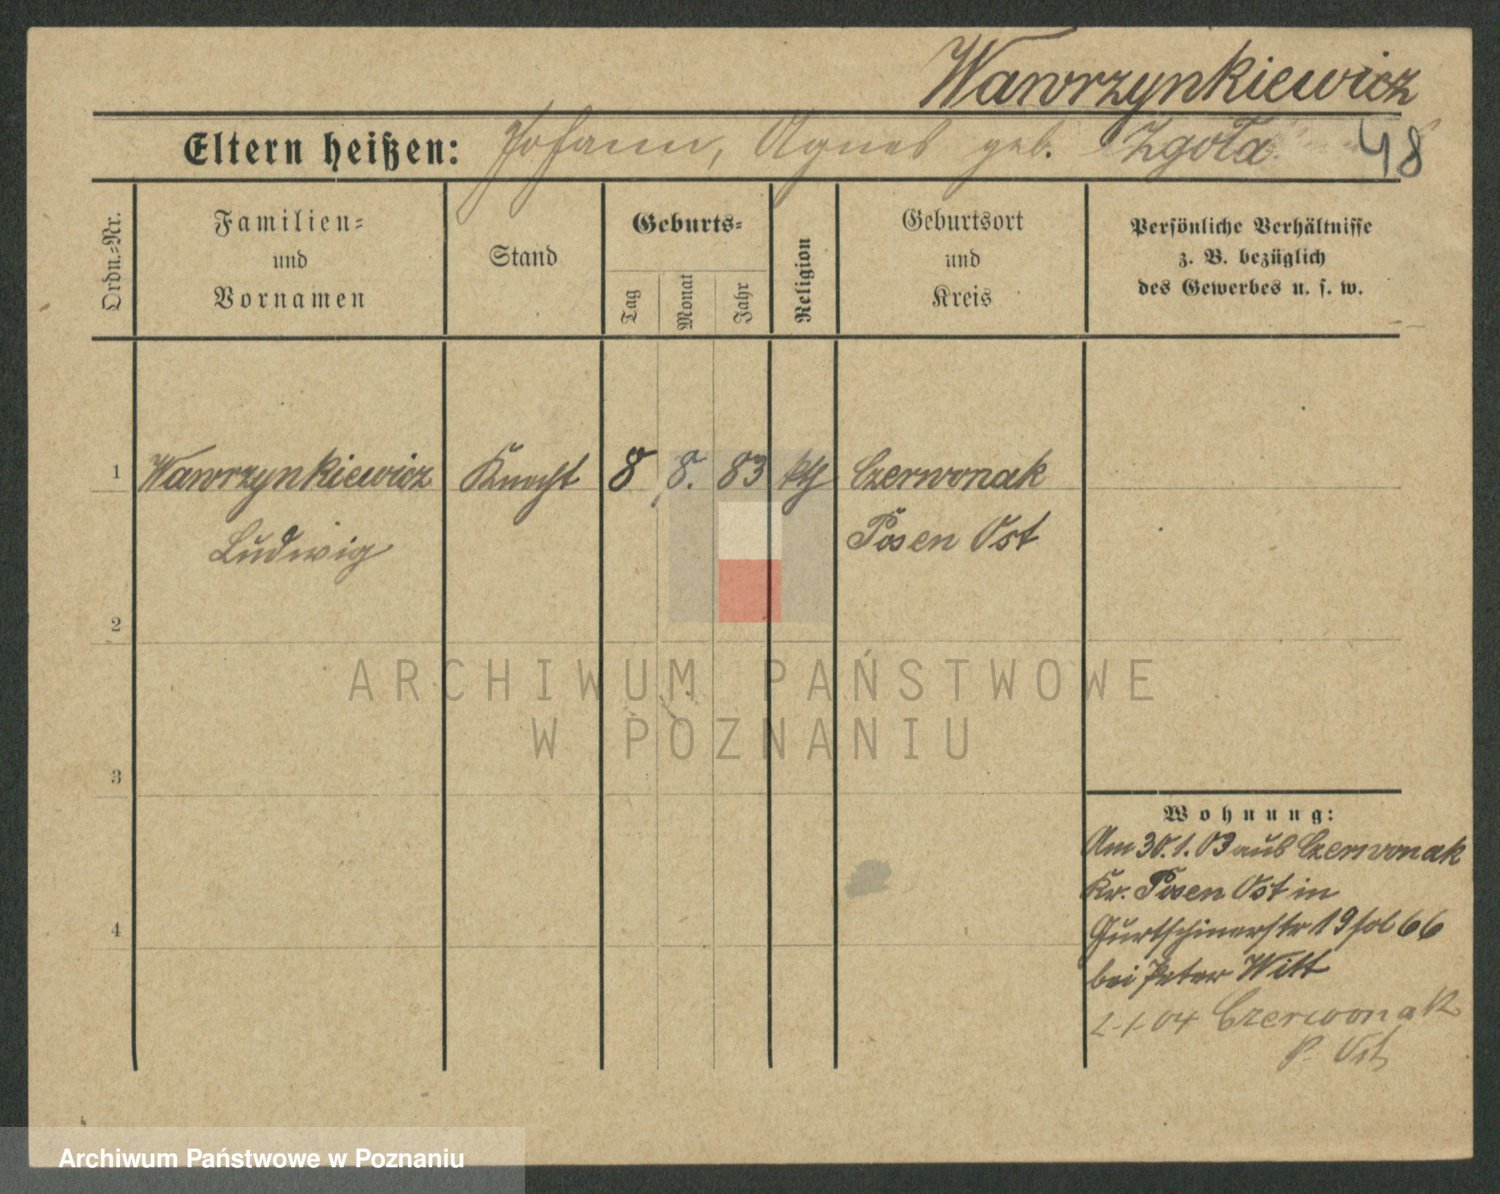 Wawrzynkiewicz
Eltern heißen: Johann, Agnes geb. Zgoła 48
Ordn.=Nr.
Familien=
und
Vornamen
Stand
Geburts=
Tag
Monat
Jahr
Religion
Geburtsort
und
Kreis
Persönliche Verhältnisse
z. B. bezüglich
des Gewerbes u. s. w.
1 Wawrzynkiewicz Knecht 8 8. 83 kth Czerwonak
Ludwig Posen Ost
2
3
4
Wohnung:
Am 30.1.03 aus Czerwonak
Kr. Posen Ost in
Gurtschinerstr 19 fol 66
bei Peter Witt
2-1-04 Czerwonak
P. Ost
ARCHIWUM PAŃSTWOWE
W POZNANIU
Archiwum Państwowe w Poznaniu